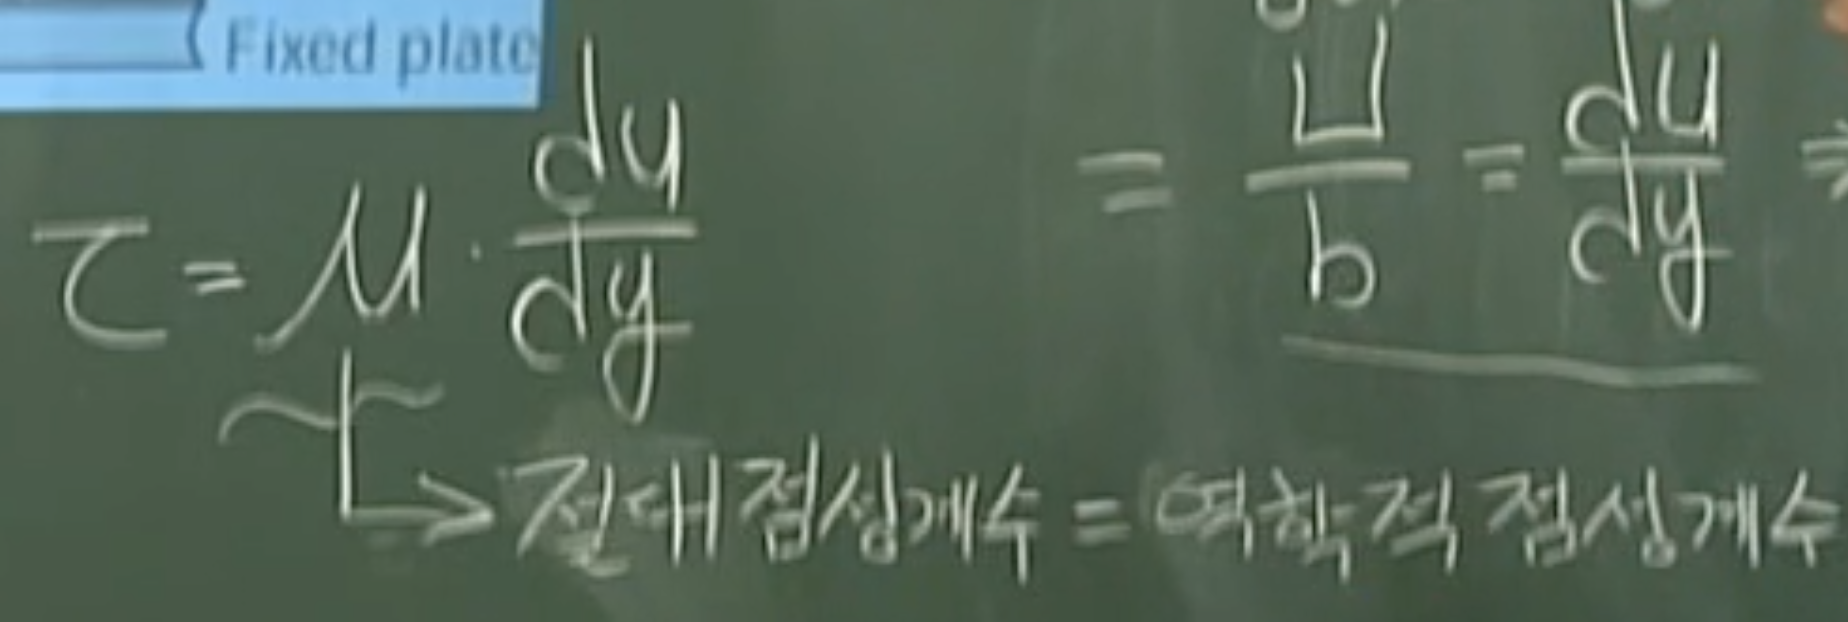 Fixed plate
τ = μ · du/dy
= U/b = du/dy
→ 절대점성계수 = 역학적 점성계수